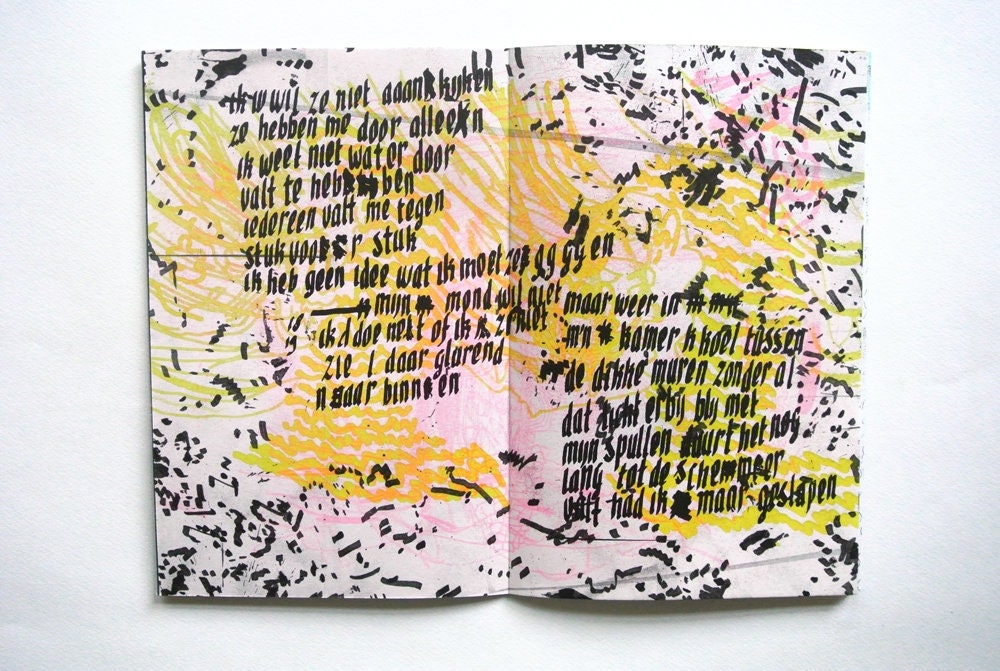 ik w wil ze niet aaankijken
ze hebben me door alleen
ik weet niet wat or door
valt te heb ben
iedereen valt me tegen
stuk voor stuk
ik heb geen idee wat ik moet ze gg gg en
mijn mond wil niet
ik d doe net of ik ze niet
zie l daar glarend
naar binnen
maar weer in
m'n kamer k koel tussen
de dikke muren zonder al
dat licht erbij bij met
mijn spullen duurt het nog
lang tot de schemmeer
valt had ik maar geslapen